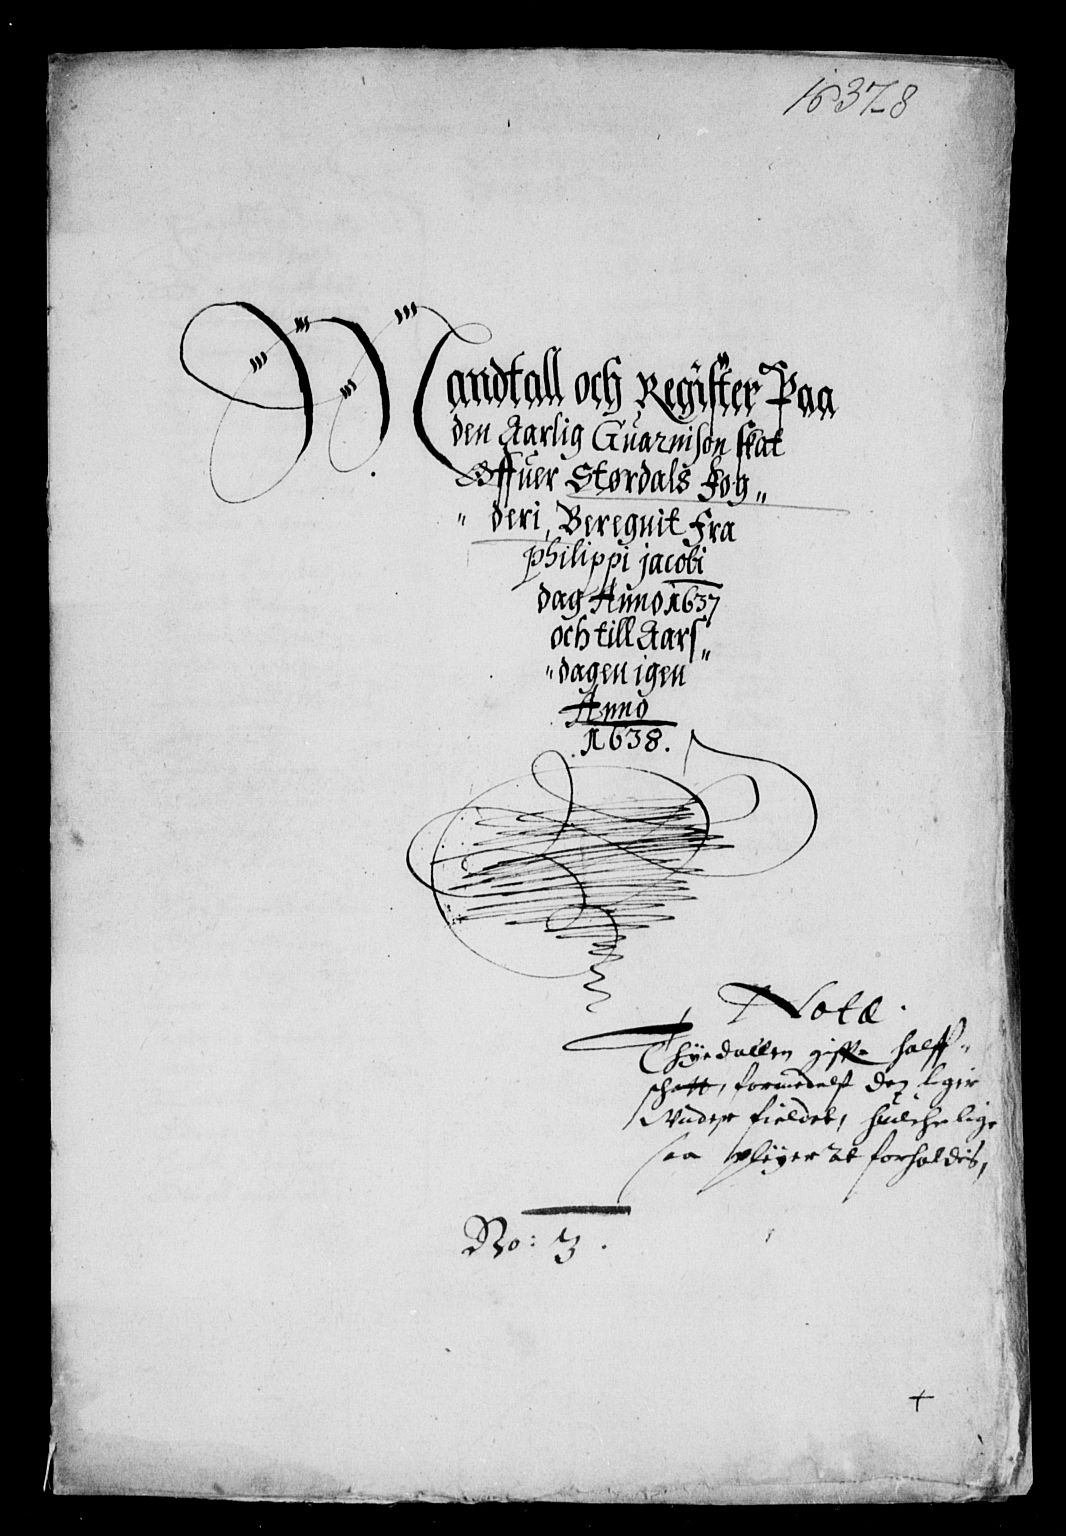 1637-8
Mandtall och Register Paa
den Aarlig Guarnison skat
Offuer Størdals Fog„
„ deri, Beregnit Fra
Philippi Jacobi
dag Anno 1637
och till Aars„
„dagen igen
Anno
1638.
Nota.
Thyedallen giffr halff„
schatt, formedelst den liger
Vnder fieldet, huilche lige
saa pleyer at forholdis,
No: 3.